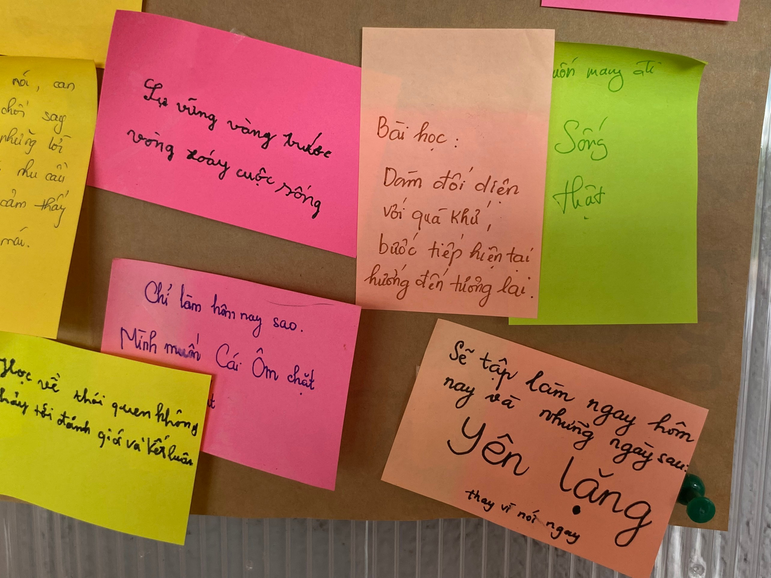 nói, can
chối say
những lời
nhu cầu
cảm thấy
nái.
Sự vững vàng trước
vòng xoáy cuộc sống
Bài học:
Dám đối diện
với quá khứ,
bước tiếp hiện tại
hướng đến tương lai.
muốn mang đi
Sống
thật
Chỉ làm hôm nay sao.
Mình muốn Cái Ôm chặt
t
Học về thói quen không
hãy tôi đánh giá và kết luận
Sẽ tập làm ngay hôm
nay và những ngày sau:
Yên lặng
thay vì nói ngay